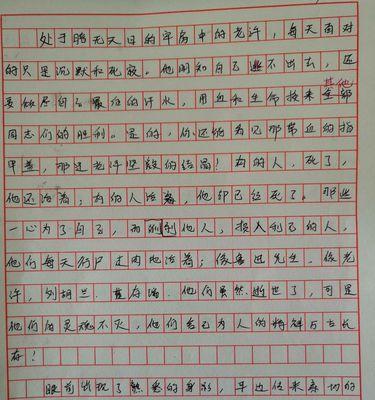 处于暗无天日的牢房中的老许，每天面对
的只是沉默和死寂。他明知自己逃不出去，还
要做尽自己最后的汗水，用血和生命换来全部其他
同志们的胜利。是的，你还能忘记那带血的指
甲盖，那是老许坚毅的结晶！有的人，死了，
他还活着；有的人活着，他却已经死了。那些
一心为了自己，而剥削他人，损人利己的人，
他们每天行尸走肉地活着；像鲁迅先生，像老
许，刘胡兰，董存瑞，他们虽然逝世了，可是
他们的灵魂不灭，他们舍己为人的精神万古长
存！
眼前出现了熟悉的身影，耳边传来亲切的